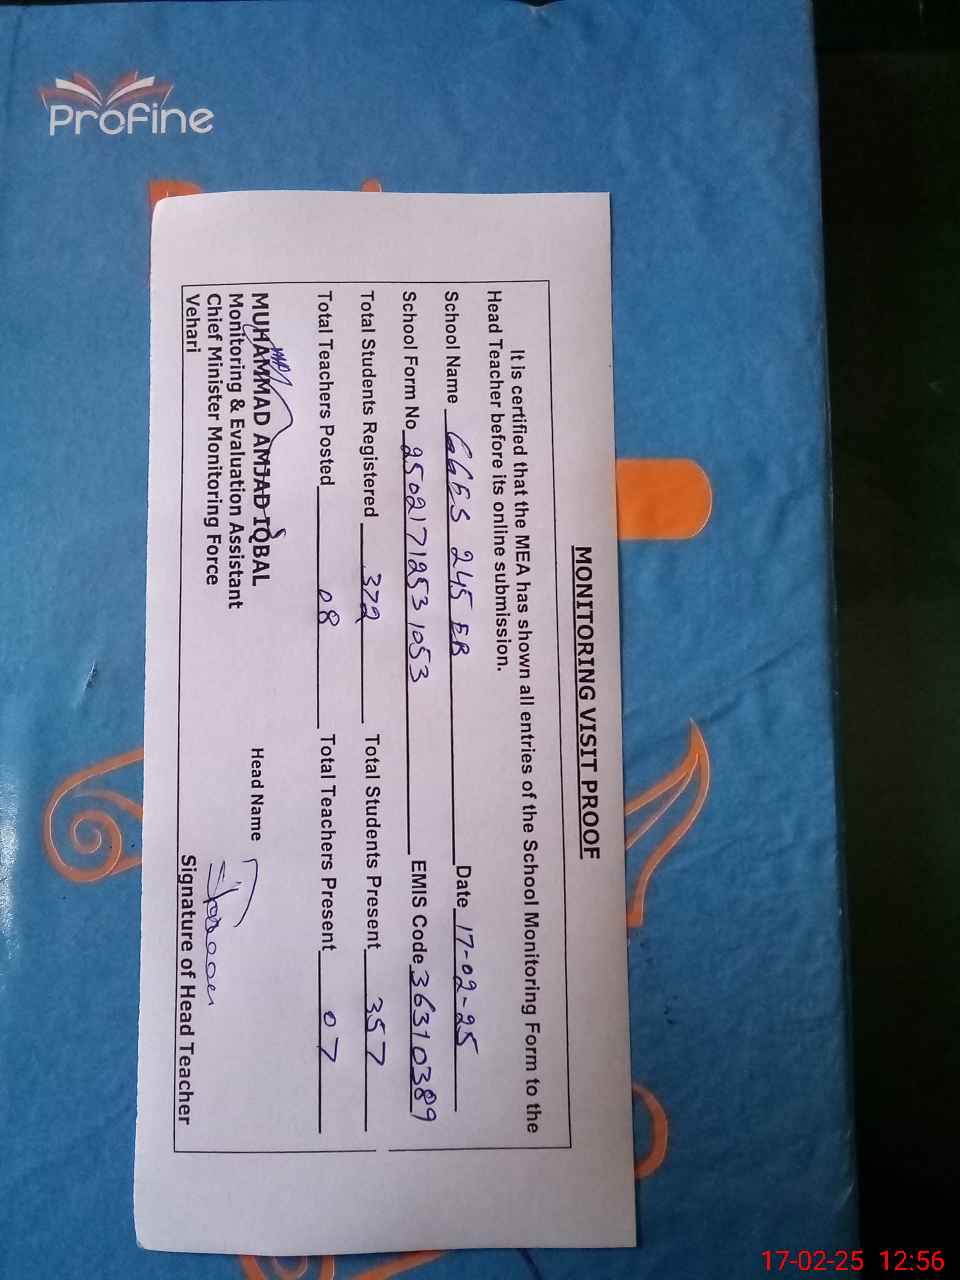 Profine
MONITORING VISIT PROOF
It is certified that the MEA has shown all entries of the School Monitoring Form to the
Head Teacher before its online submission.
School Name GGES 245 EB Date 17-02-25
School Form No 2502171253 1053 EMIS Code 36310389
Total Students Registered 372 Total Students Present 357
Total Teachers Posted 08 Total Teachers Present 07
MUHAMMAD AMJAD IQBAL Head Name
Monitoring & Evaluation Assistant
Chief Minister Monitoring Force
Vehari Signature of Head Teacher
17-02-25 12:56